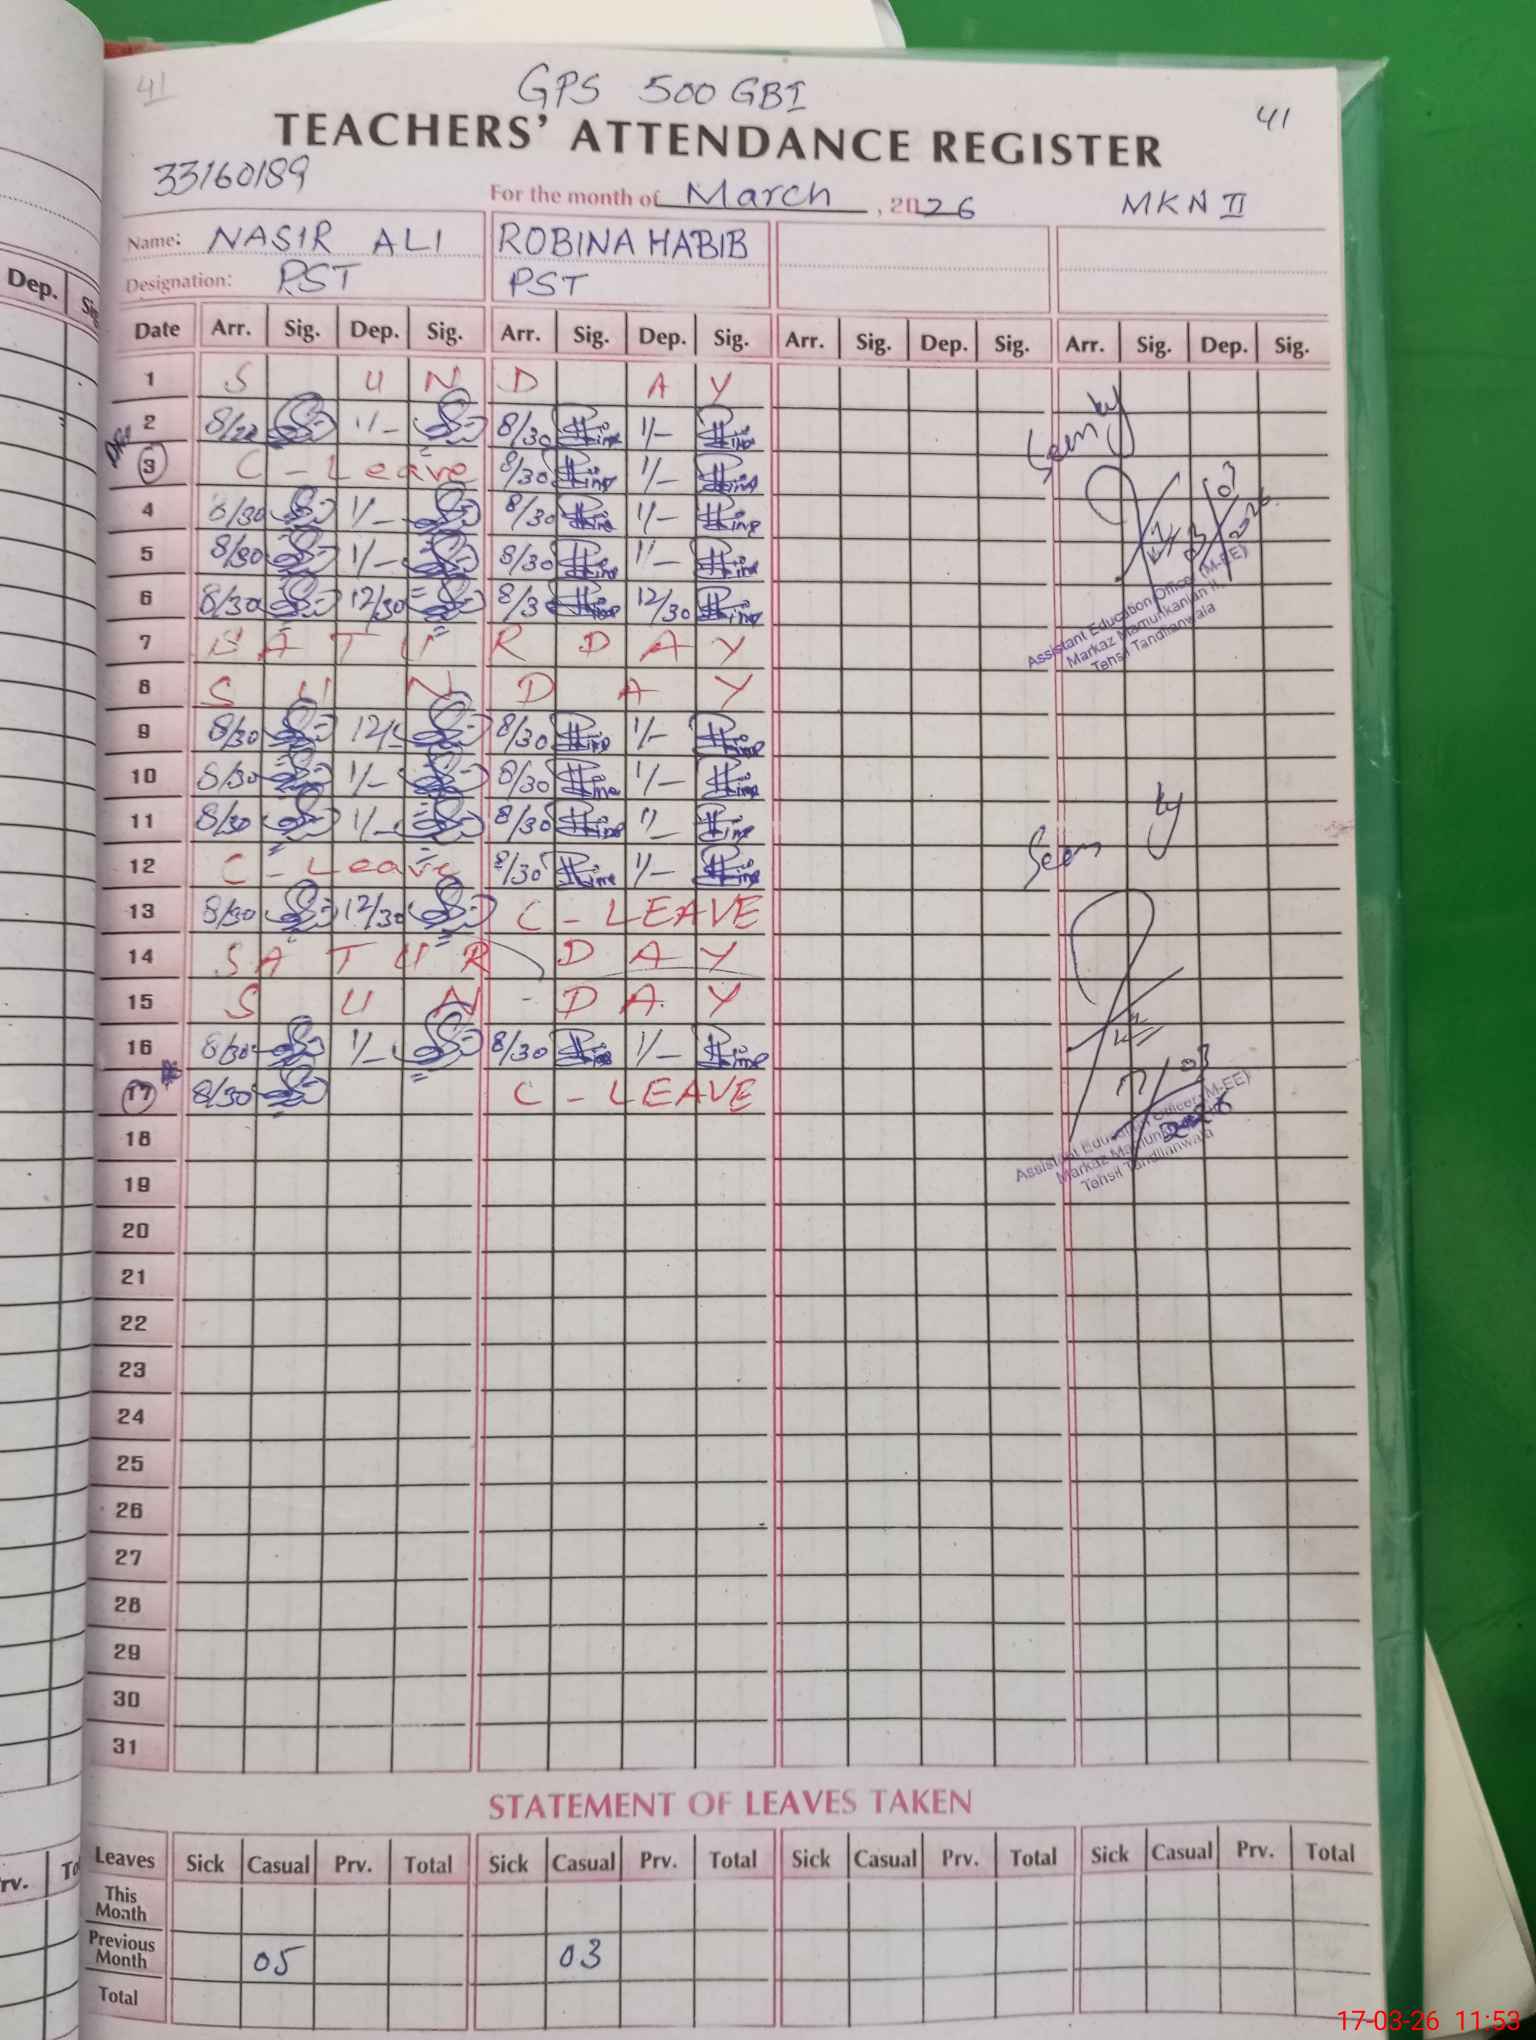 41
GPS 500 GBI
41
TEACHERS' ATTENDANCE REGISTER
33160189
For the month of March, 2026
MKN II
Name: NASIR ALI ROBINA HABIB
Designation: PST PST
Dep.
Date Arr. Sig. Dep. Sig. Arr. Sig. Dep. Sig. Arr. Sig. Dep. Sig. Arr. Sig. Dep. Sig.
1 S U N D A Y
2 1/- 8/30 1/-
3 C - Leave 8/30 1/-
4 8/30 1/- 8/30 1/-
5 8/30 1/- 8/30 1/-
6 8/30 12/30 8/3 12/30
7 S A T U R D A Y
8 S U N D A Y
9 8/30 8/30 1/-
10 8/30 1/- 8/30 1/-
11 8/30 1/- 8/30 1/-
12 C - Leave 8/30 1/-
13 8/30 12/30 C - LEAVE
14 S A T U R D A Y
15 S U N - D A Y
16 8/30 1/- 8/30 1/-
17 8/30 C - LEAVE
18
19
20
21
22
23
24
25
26
27
28
29
30
31
Seen by
03
2026
Assistant Education Officer (M-EE)
Markaz Mamunkanjan II
Tehsil Tandlianwala
Seen by
17/03
Assistant Education Officer (M-EE)
Markaz Mamun
Tehsil Tandlianwala
STATEMENT OF LEAVES TAKEN
Leaves Sick Casual Prv. Total Sick Casual Prv. Total Sick Casual Prv. Total Sick Casual Prv. Total
This Month
Previous Month 05 03
Total
17-03-26 11:53